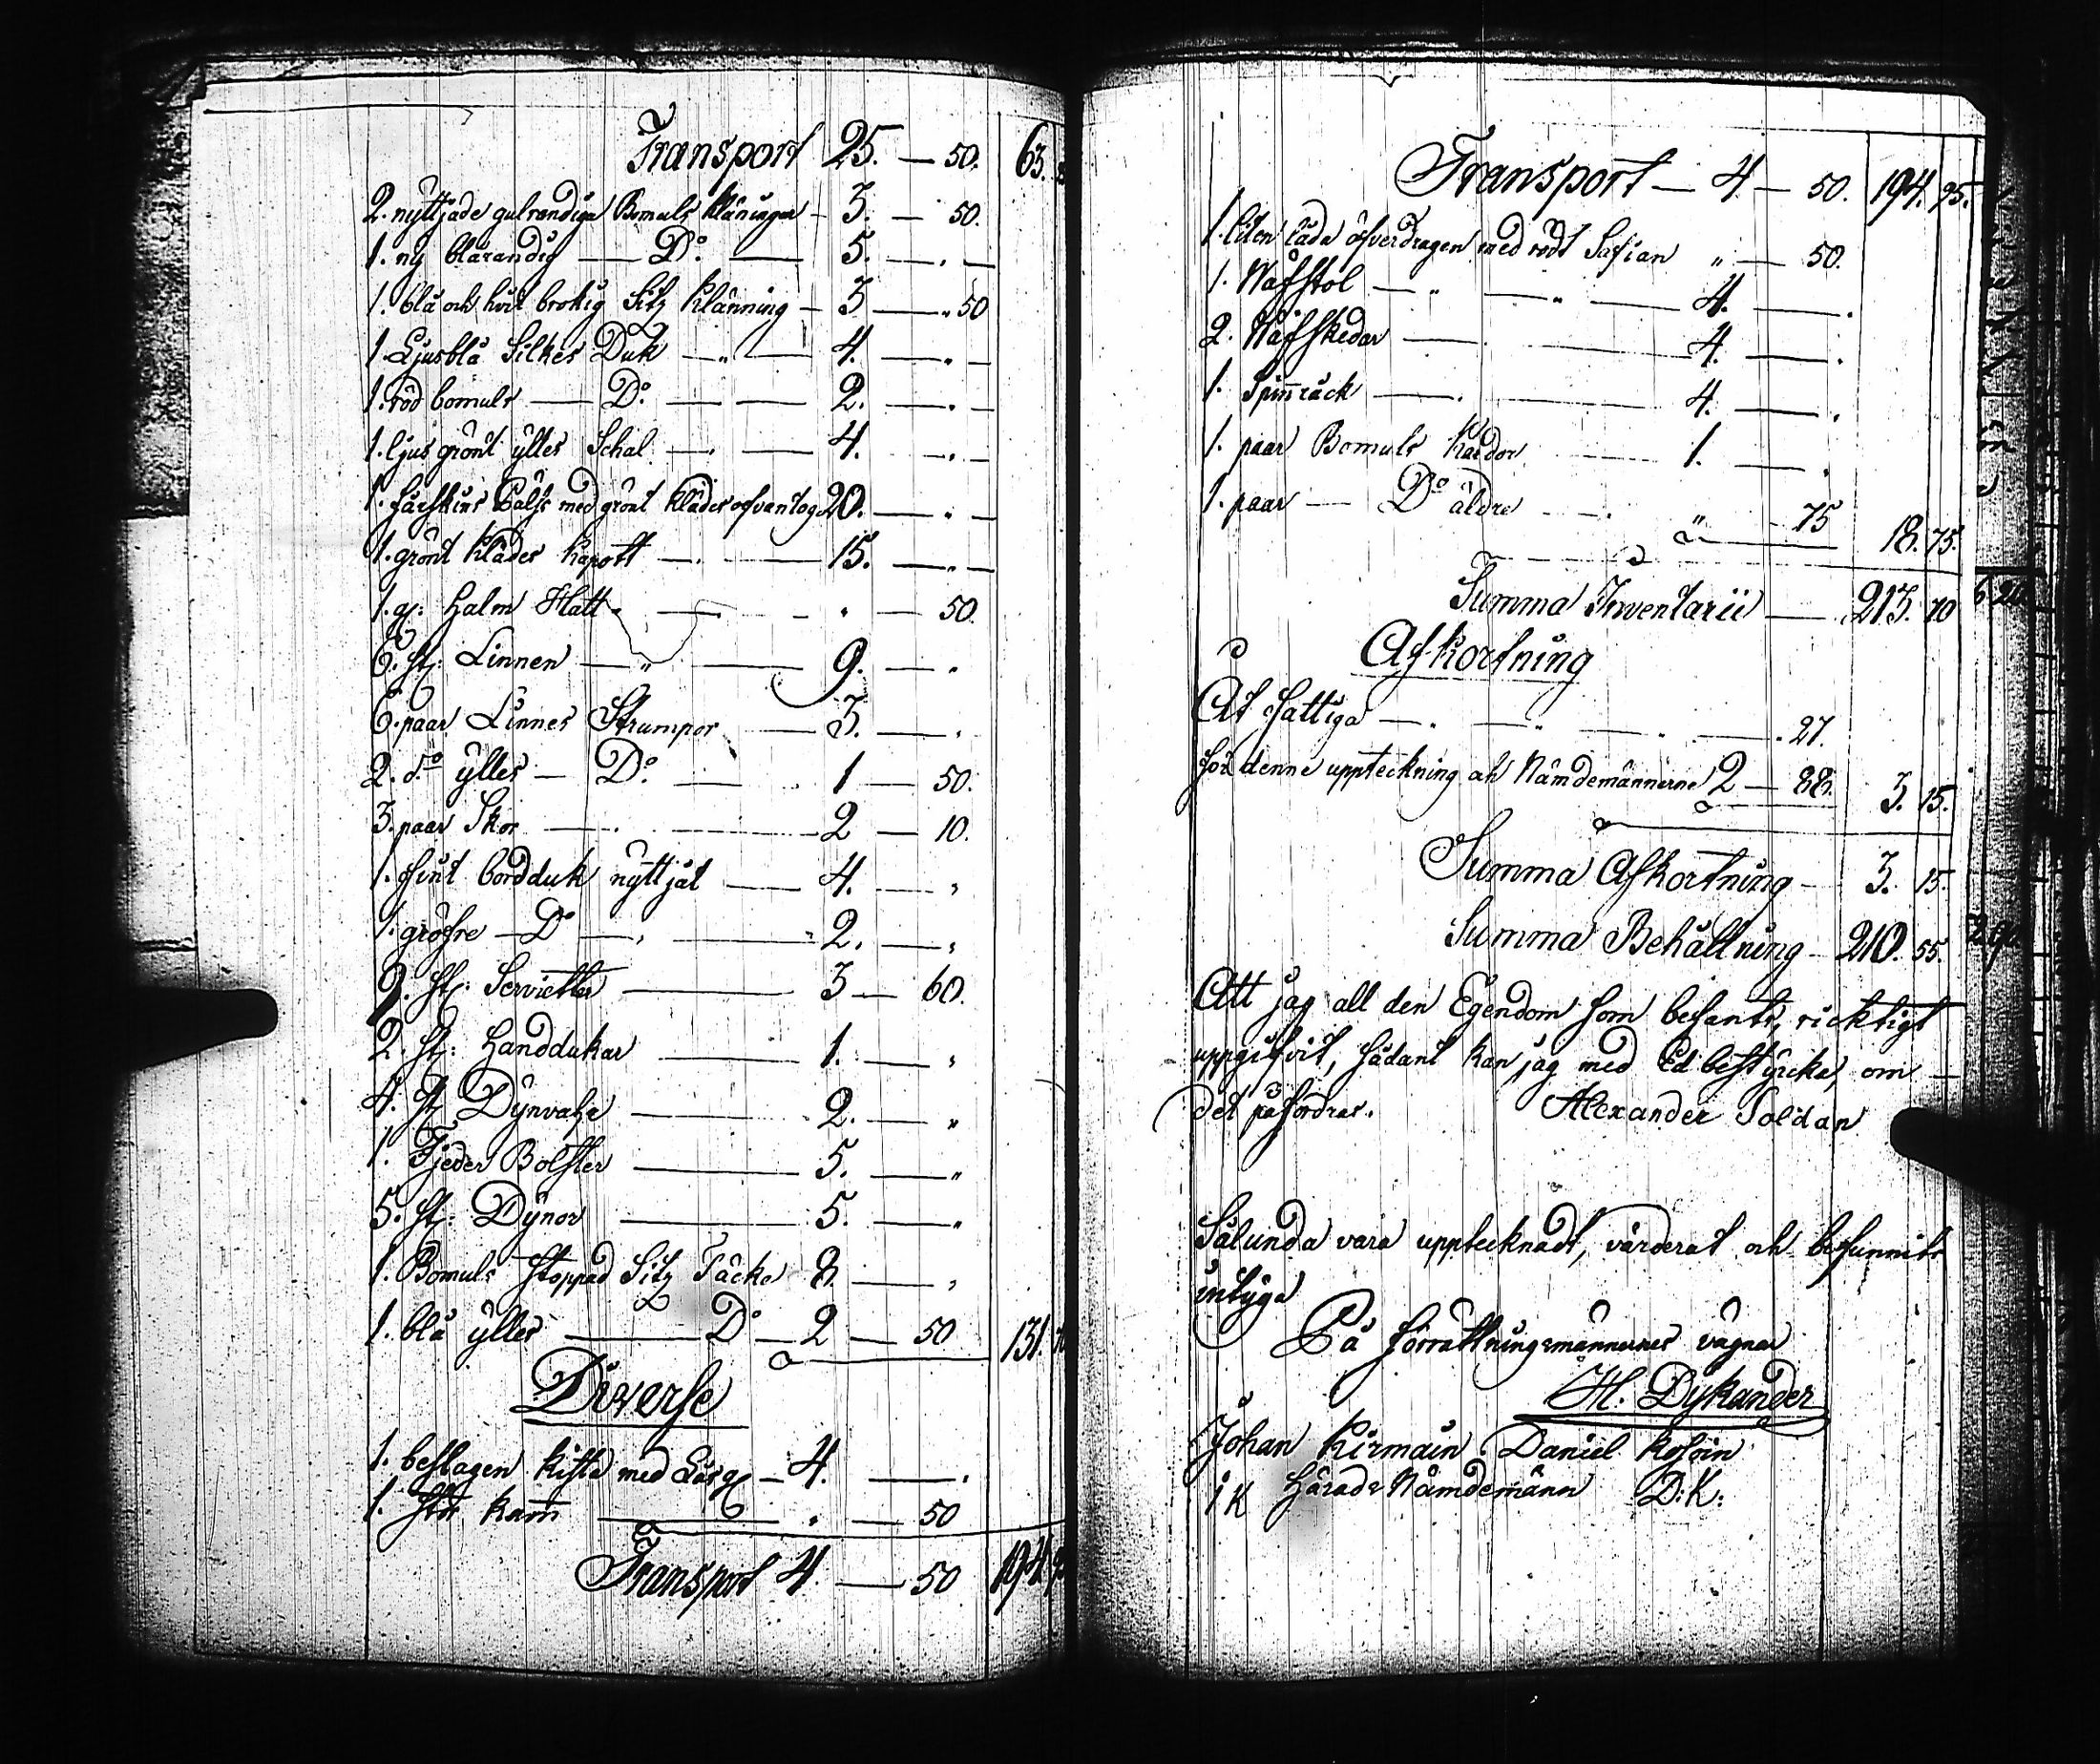 Transport 25. — 50. 63.
2. nyttjade gulrandiga Bomuls Kläningar — 3. — 50.
1. ny blårandig — D:o — 5. — " —
1. blå och hvit brokig Sitz Klänning — 3 — " 50
1 Ljusblå Silkes Duk — " — 4. — " —
1. röd bomuls — D:o — 2. — " —
1. ljus grönt ylles Schal — " — 4. — " —
1. fårskins Päls med grönt Klädes ofvantog 20. — " —
1. grönt Klädes Kapott — " — 15. — " —
1. g: halm Hatt — " — 50.
6. st: Linnen — " — 9. — "
6. paar Linnes Strumpor — 3. — "
2. d:o ylles — D:o — 1 — 50.
3. paar Skor — 2 — 10.
1. fint bordduk nyttjat — 4. — "
1. gröfre — D:o — 2. — "
9. st: Servietter — 3 — 60.
2. st: handdukar — 1. — "
4. st Dynvahr — 2. — "
1. Fjeder Bolster — 5. — "
5. st: Dynor — 5. — "
1. Bomuls stoppad Sitz Täcke 8. — "
1. blå ylles — D:o — 2 — 50 131.
Diverse
1. beslagen kista med Lås — 4. — "
1. stor kam — " — 50
Transport 4 — 50 194
Transport — 4 — 50. 194. 95.
1. liten låda öfverdragen med rödt Safian " — 50.
1. Wäfstol — " — " — 4. — "
2. Wäfskedar — 4. — "
1. Spinråck — 4. — "
1. paar Bomuls Kardor 1. — "
1. paar — D:o äldre — " — 75 18. 75.
Summa Inventarii — 213. 70
Afkortning
At fattiga — " — " — " 27.
för denne uppteckning åt Nämdemännerne 2 — 88. 3. 15.
Summa Afkortning — 3. 15.
Summa Behållning — 210. 55.
Att jag all den Egendom som befants, ricktigt
uppgifvit, sådant kan jag med Ed bestyrcka, om
det påfordras. Alexander Soldan
Sålunda vara upptecknadt, värderat och befunnits
intyga
På förrättningsmännernes vägnar
H. Dykander
Johan Kirmain Daniel
IK Härads Nämdemänn D:K: